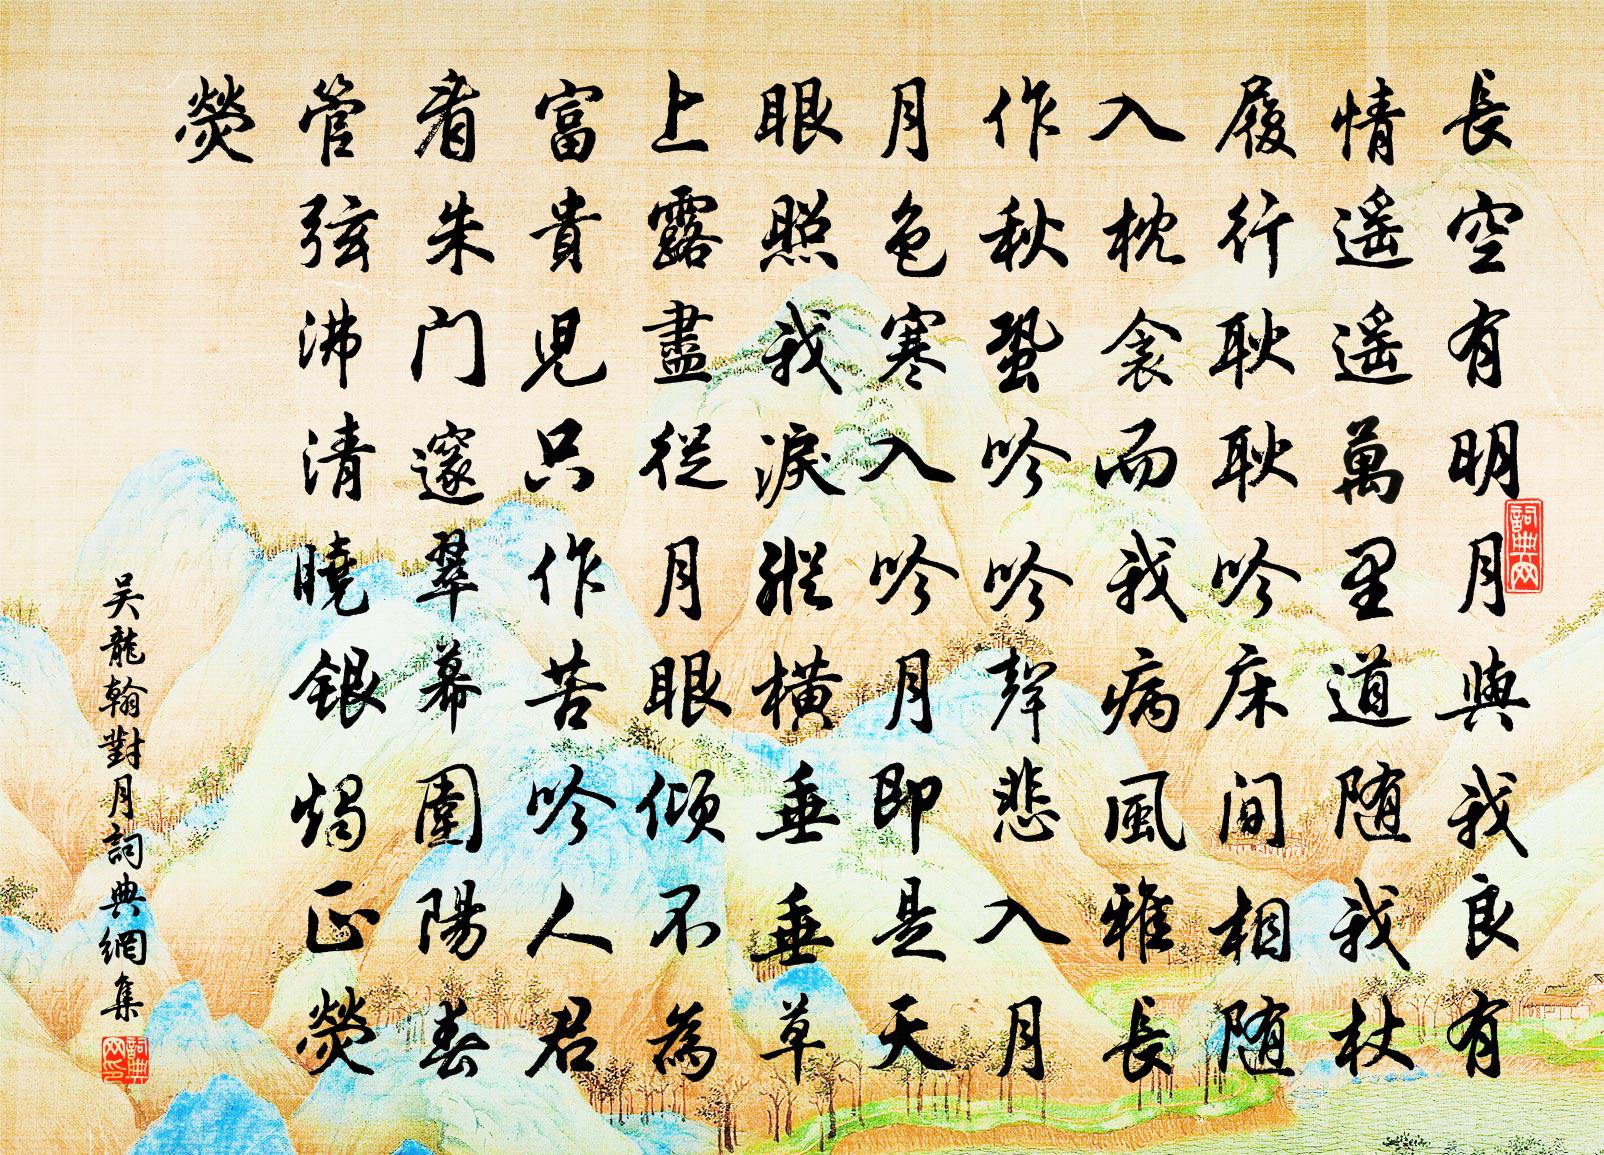 長空有明月與我良有
情遥遥萬里道随我杖
履行耿耿吟床间相随
入枕衾而我病風雅長
作秋蛩吟吟聲悲入月
月色寒入吟月即是天
眼照我淚縱橫垂垂草
上露盡從月眼傾不為
富貴兒只作苦吟人君
看朱门邃翠幕圍陽春
管弦沸清曉銀燭正熒
熒
吴龍翰對月詞典網集
詞典网
詞典网印